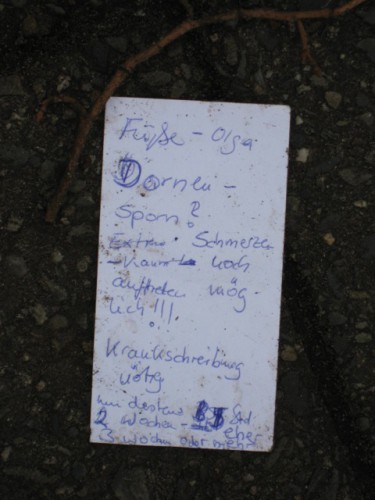 Füße - Olga
Dornen-
Sporn?
Extrem Schmerzen
- kaum noch
auftreten mög-
lich!!!
Krankschreibung
nötig
mindestens
2 Wochen - eher
3 Wochen oder mehr